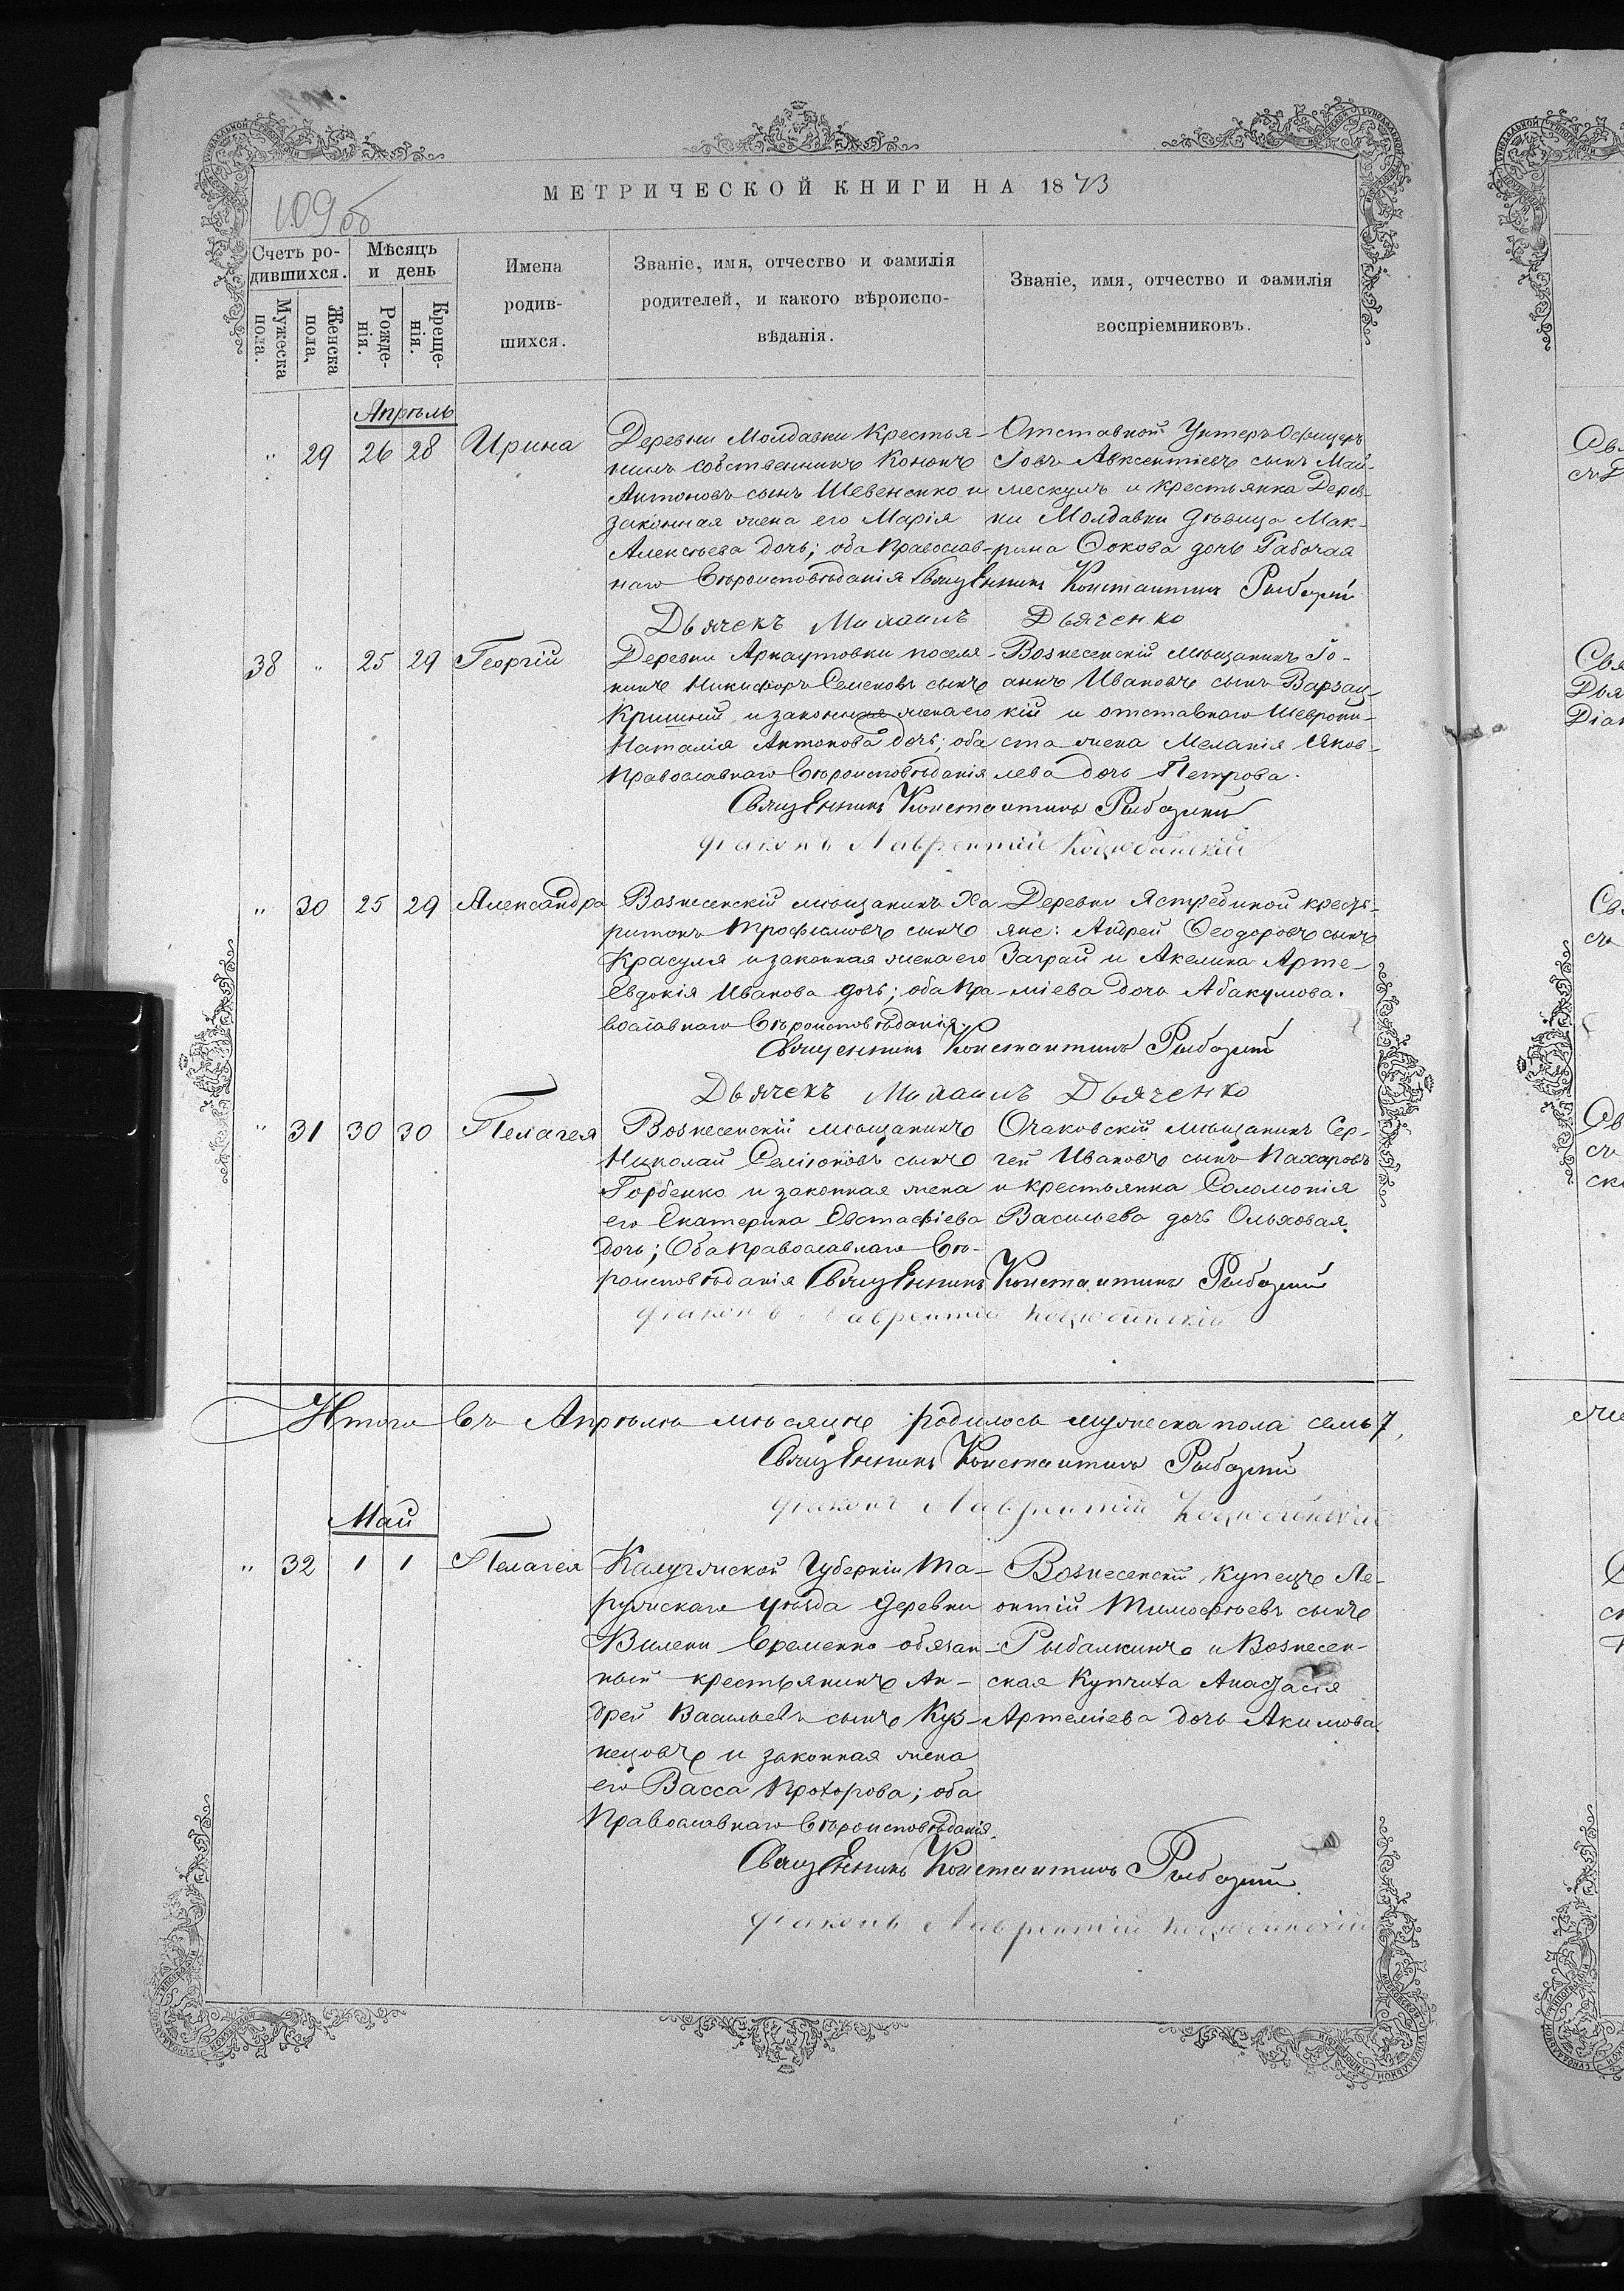 109 об
МЕТРИЧЕСКОЙ КНИГИ НА 1873
Счетъ ро-
дившихся.
Мужеска
пола.
Женска
пола.
Мѣсяцъ
и день
Рожде-
нія.
Креще-
нія.
Имена
родив-
шихся.
Званіе, имя, отчество и фамилія
родителей, и какого вѣроиспо-
вѣданія.
Званіе, имя, отчество и фамилія
воспріемниковъ.
Апрѣль
" 29 26 28 Ирина
Деревни Молдавки Крестья-
нинъ собственникъ Кононъ
Антоновъ сынъ Шевченко и
законная жена его Марія
Алексѣева дочь; оба Православ-
наго Вѣроисповѣданія
Отставной Унтеръ Офицеръ
Іовъ Авксентіевъ сынъ Май-
мескулъ и крестьянка Дерев-
ни Молдавки дѣвица Мак-
рина Ѳокова дочь Рабочая
Священникъ Константинъ
Дьячекъ Михаилъ Дьяченко
38 " 25 29 Георгій
Деревни Арнаутовки поселя-
нинъ Никифоръ Семеновъ сынъ
Кришній и законная жена его
Наталія Антонова дочь; оба
Православнаго Вѣроисповѣданія
Вознесенскій мѣщанинъ Іо-
аннъ Ивановъ сынъ Варзац-
кій и отставнаго Шеврони-
ста жена Меланія Яков-
лева дочь Петрова.
Священникъ Константинъ
Діаконъ Лаврентій Коцюбинскій
" 30 25 29 Александра
Вознесенскій мѣщанинъ Ха-
ритонъ Трофимовъ сынъ
Красуля и законная жена его
Евдокія Иванова дочь; оба Пра-
вославнаго Вѣроисповѣданія.
Деревни Ястребиной кресть-
яне: Андрей Ѳеодоровъ сынъ
Заграй и Акелина Арте-
міева дочь Абакумова.
Священникъ Константинъ
Дьячекъ Михаилъ Дьяченко
" 31 30 30 Пелагея
Вознесенскій мѣщанинъ
Николай Семіоновъ сынъ
Горбенко и законная жена
его Екатерина Евстафіева
дочь; Оба Православнаго Вѣ-
роисповѣданія
Очаковскій мѣщанинъ Сер-
гей Ивановъ сынъ Пахаровъ
и крестьянка Соломонія
Васильева дочь Ольховая.
Священникъ Константинъ
Діаконъ Лаврентій Коцюбинскій
Итого въ Апрѣлѣ мѣсяцѣ родилось мужеска пола семь 7,
Священникъ Константинъ
Діаконъ Лаврентій Коцюбинскій
Май
" 32 1 1 Пелагея
Калужской Губерніи Та-
рузскаго уѣзда деревни
Временно обязан-
ный крестьянинъ Ан-
дрей Васильевъ сынъ Куз-
нецовъ и законная жена
его Васса Прохорова; оба
Православнаго Вѣроисповѣданія.
Вознесенскій Купецъ Ле-
онтій Тимофѣевъ сынъ
Рыбалкинъ и Вознесен-
ская Купчиха Анастасія
Артеміева дочь Акимова.
Священникъ Константинъ
Діаконъ Лаврентій Коцюбинскій